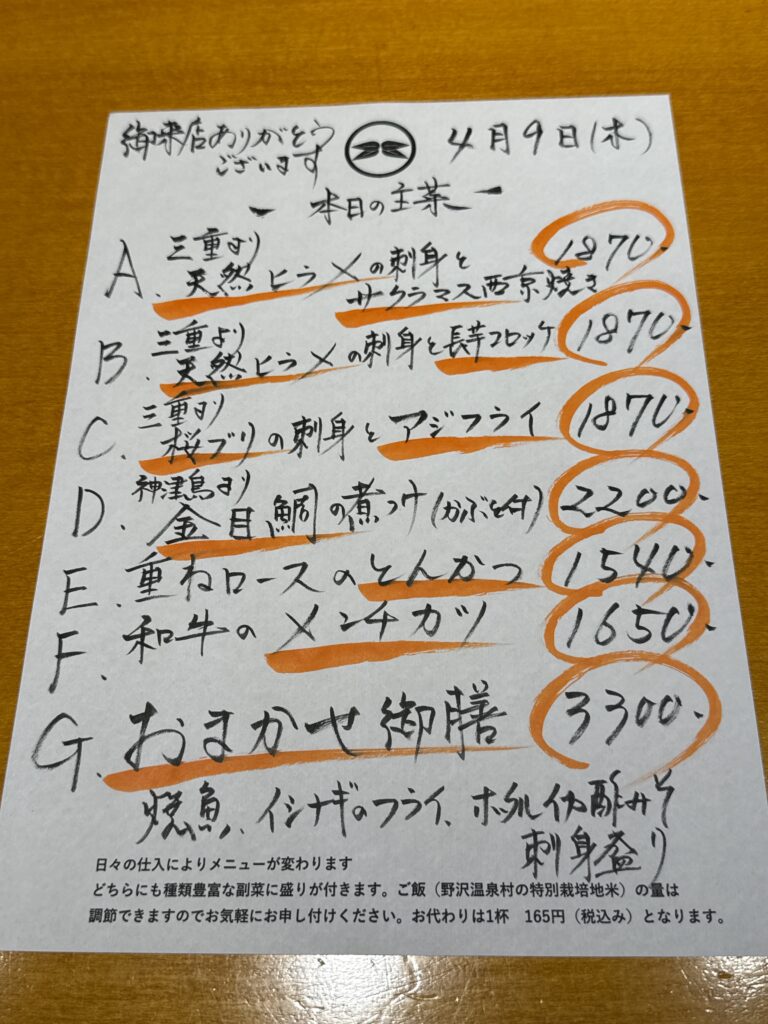 御来店ありがとう
ございます
4月9日(木)
ー 本日の主菜 ー
三重より
A. 天然ヒラメの刺身と
サクラマス西京焼き
1870.
三重より
B. 天然ヒラメの刺身と長芋コロッケ 1870.
三重より
C. 桜ブリの刺身とアジフライ 1870.
神津島より
D. 金目鯛の煮つけ(かぶと付) 2200.
E. 重ねロースのとんかつ 1540.
F. 和牛のメンチカツ 1650.
G. おまかせ御膳 3300.
焼魚、イシナギのフライ、ホタルイカ酢みそ
刺身盛り
日々の仕入によりメニューが変わります
どちらにも種類豊富な副菜に盛りが付きます。ご飯（野沢温泉村の特別栽培地米）の量は
調節できますのでお気軽にお申し付けください。お代わりは1杯　165円（税込み）となります。